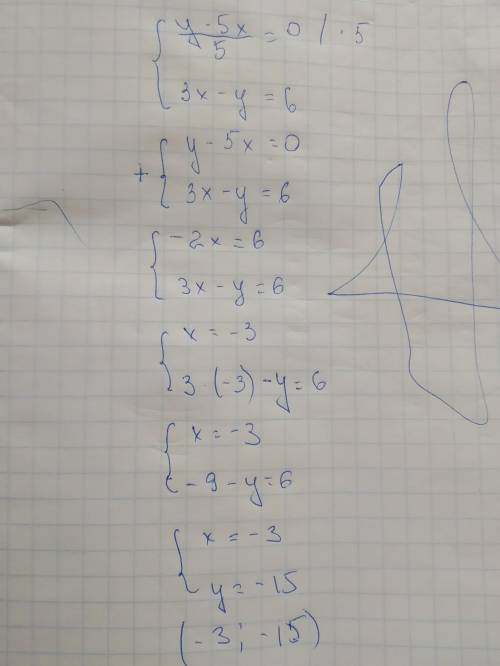 { (y - 5x)/5 = 0 / · 5
3x - y = 6
+ { y - 5x = 0
3x - y = 6
{ -2x = 6
3x - y = 6
{ x = -3
3 · (-3) - y = 6
{ x = -3
-9 - y = 6
{ x = -3
y = -15
(-3; -15)